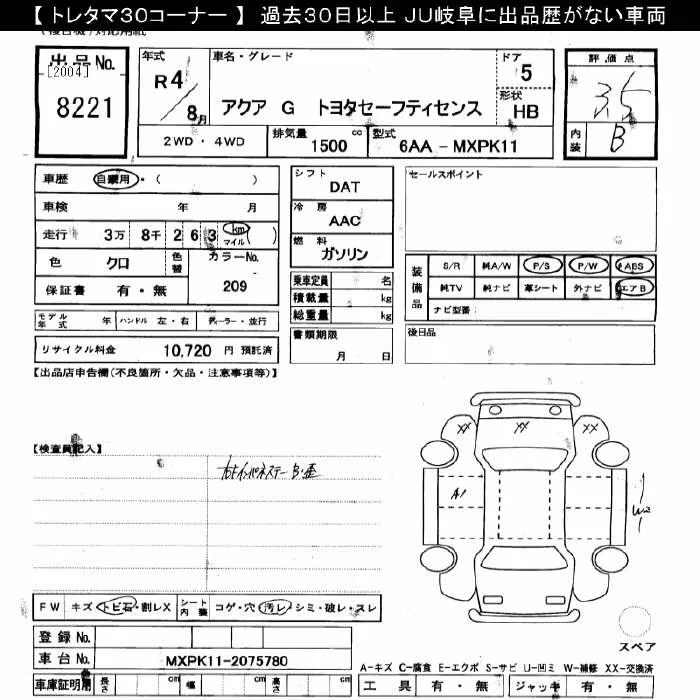 【 トレタマ30コーナー 】 過去30日以上 JU岐阜に出品歴がない車両
出品No.
[2004]
8221
年式
R4/8月
車名・グレード
アクア G トヨタセーフティセンス
ドア
5
形状
HB
2WD ・ 4WD
排気量 1500 cc
型式 6AA - MXPK11
評価点
3.5
内装 B
車歴 自家用 ・ ( )
車検 年 月
走行 3万 8千 2 6 3 km マイル ( )
色 クロ
色替
カラーNo. 209
保証書 有 ・ 無
モデル年式 年 ハンドル 左・右 ディーラー・並行
リサイクル料金 10,720 円 預託済
シフト
DAT
冷房
AAC
燃料
ガソリン
乗車定員 名
積載量 kg
総重量 kg
書類期限
月 日
セールスポイント
装備品
S/R 純A/W P/S P/W ABS
純TV 純ナビ 革シート 外ナビ エアB
ナビ型番:
後日品
【出品店申告欄(不良箇所・欠品・注意事項等)】
【検査員記入】
XX XX XX
A1
W2
FW キズ・トビ石・割レX
シート内装 コゲ・穴・汚レ・シミ・破レ・スレ
登録No.
車台No. MXPK11-2075780
スペア
A-キズ C-腐食 E-エクボ S-サビ U-凹ミ W-補修 XX-交換済
車庫証明用 長さ cm 幅 cm 高さ cm
工具 有 ・ 無 ジャッキ 有 ・ 無